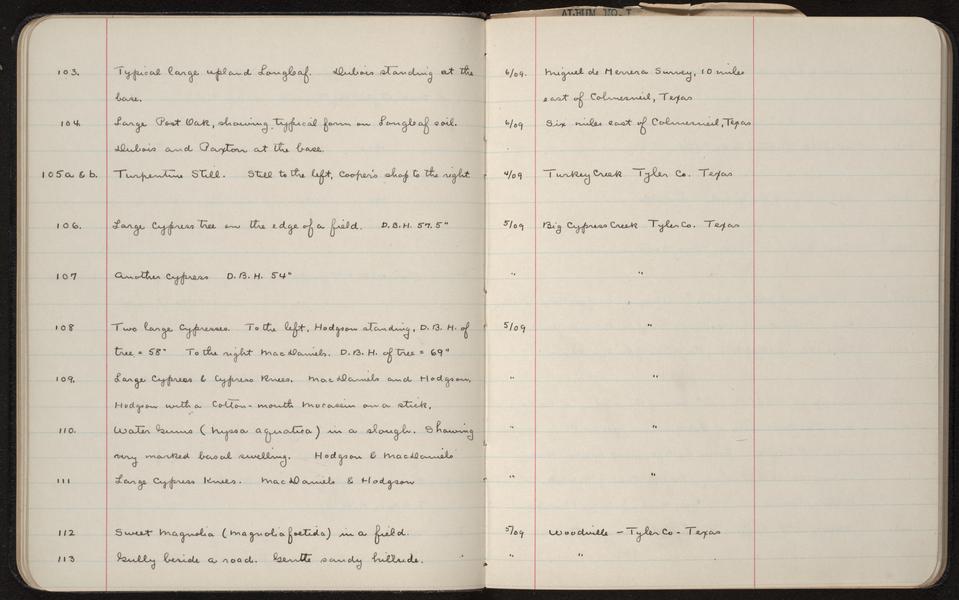 ALBUM NO. I
103. Typical large upland Longleaf. Dubois standing at the 6/09. Miguel de Herrera Survey, 10 miles
base. east of Colmesneil, Texas
104. Large Post Oak, showing typical form on Longleaf soil. 6/09 Six miles east of Colmesneil, Texas
Dubois and Paxton at the base.
105a & b. Turpentine Still. Still to the left, Cooper's shop to the right 4/09 Turkey Creek Tyler Co. Texas
106. Large Cypress tree on the edge of a field. D.B.H. 57.5" 5/09 Big Cypress Creek Tyler Co. Texas
107 Another Cypress D.B.H. 54" " "
108 Two large Cypresses. To the left, Hodgson standing, D.B.H. of 5/09 "
tree = 58" To the right MacDaniels. D.B.H. of tree = 69"
109. Large Cypress & Cypress Knees. MacDaniels and Hodgson, " "
Hodgson with a Cotton-mouth Mocassin on a stick.
110. Water Gums (Nyssa aquatica) in a slough. Showing " "
very marked basal swelling. Hodgson & MacDaniels
111 Large Cypress Knees. MacDaniels & Hodgson " "
112 Sweet Magnolia (Magnolia foetida) in a field. 5/09 Woodville - Tyler Co - Texas
113 Gully beside a road. Gentle sandy hillside. " "